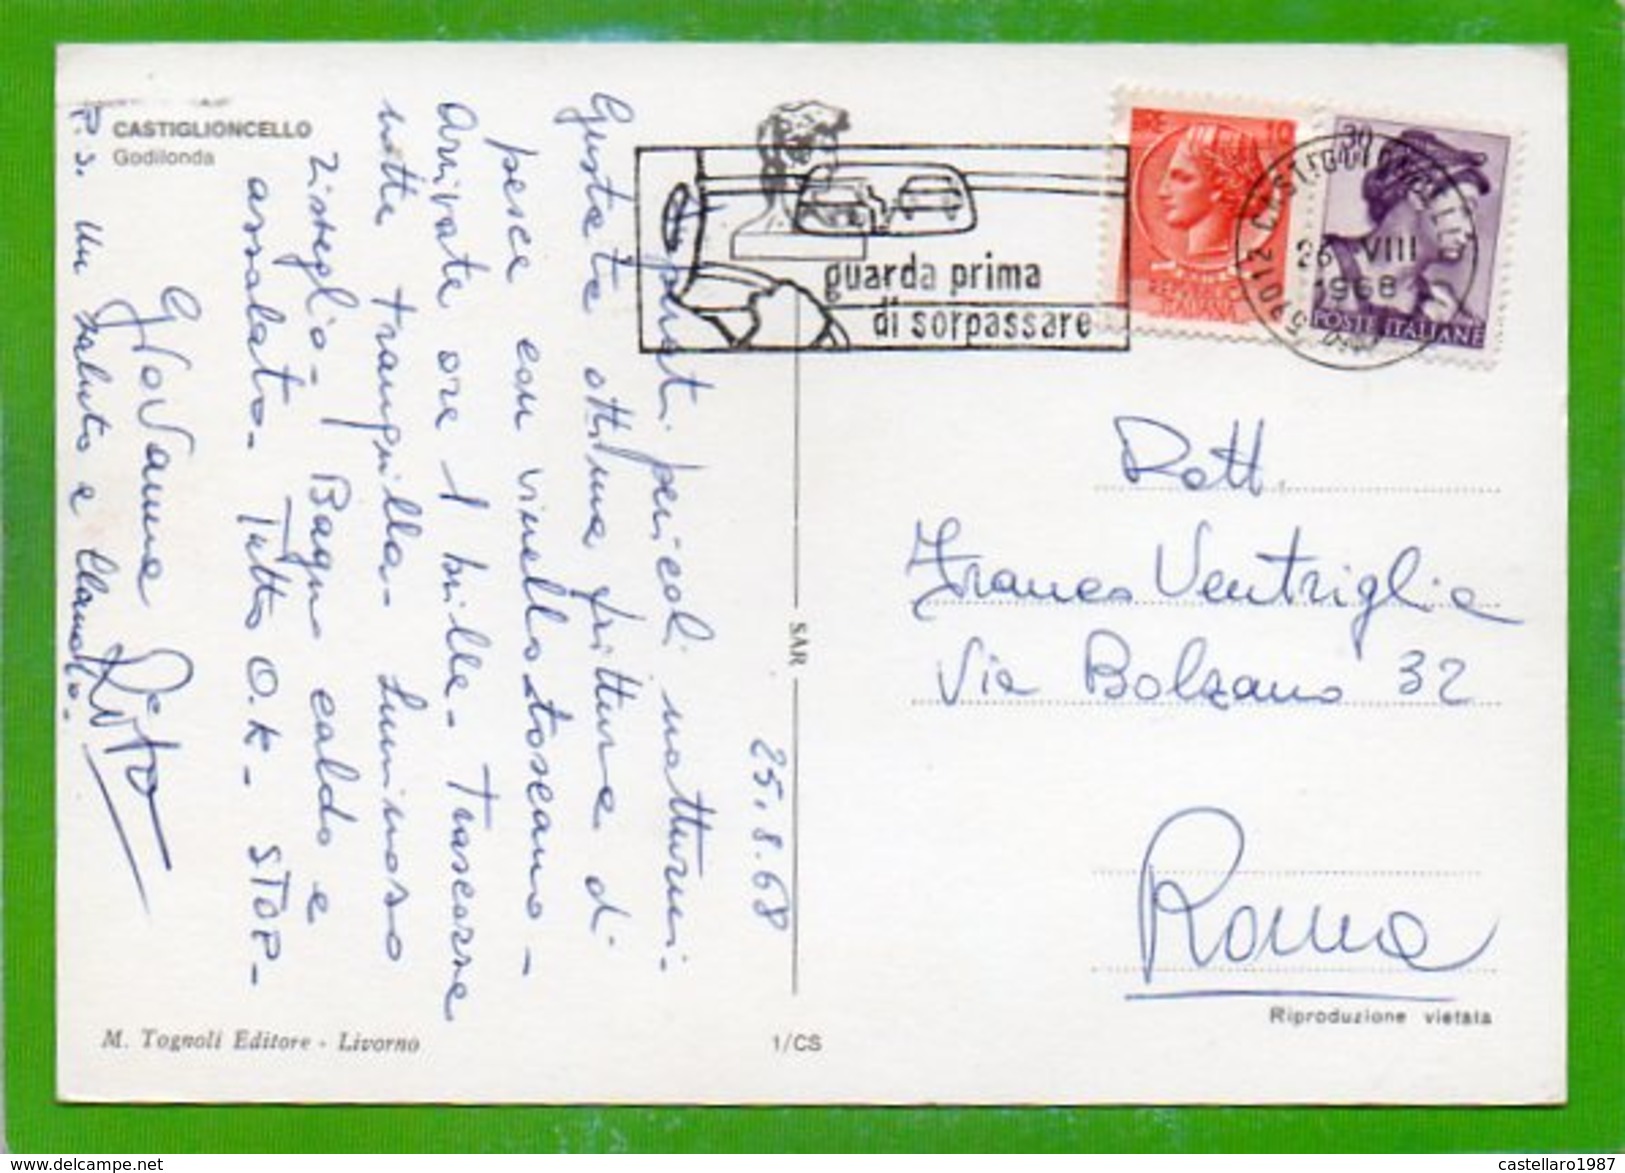 CASTIGLIONCELLO
Godilonda
25.8.68
Superati pericoli notturni.
Gustata ottima frittura di
pesce con vinello toscano -
Arrivate ore 1 brille - Trascorsa
notte tranquilla - Luminoso
risveglio - Bagno caldo e
assolato - Tutto O.K. - STOP -
Giovanna
P.S. Un saluto e
guarda prima
di sorpassare
LIRE 10
REPUBBLICA
ITALIANA
30
POSTE ITALIANE
57012 CASTIGLIONCELLO
26 VIII
1968
Dott.
Franco Ventriglia
Via Bolzano 32
Roma
SAR
M. Tognoli Editore - Livorno
1/CS
Riproduzione vietata
castellaro1987